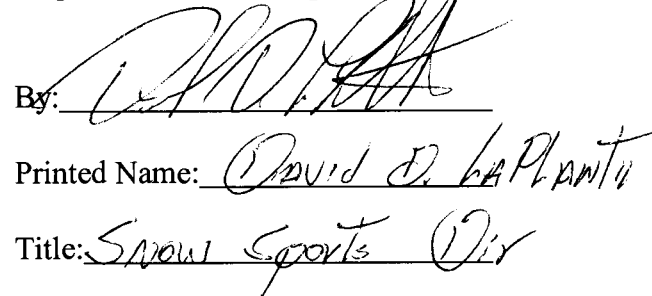 By:
Printed Name: David D. LaPlante
Title: Snow Sports Dir